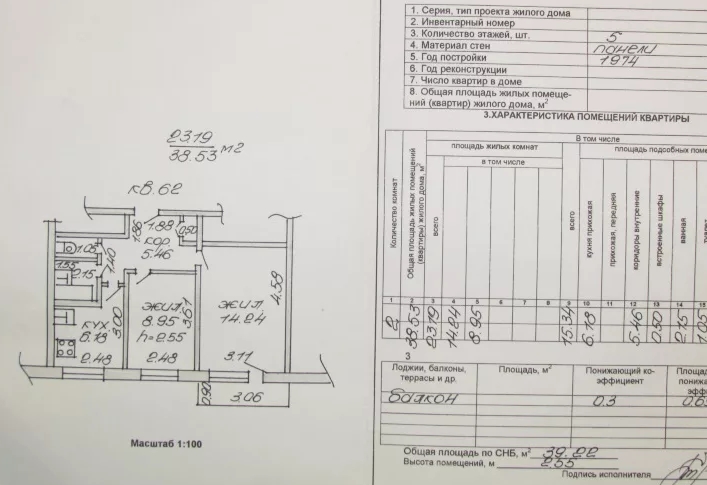 23.19
38.53 м2
кв.62
1.88
1.88
0.50
кор.
5.46
1.05
1.40
1.55
2.15
4.58
кух.
6.18
3.00
2.48
жил
8.95
h=2.55
3.61
2.48
жил
14.24
3.11
0.90
3.06
Масштаб 1:100
1. Серия, тип проекта жилого дома
2. Инвентарный номер
3. Количество этажей, шт. 5
4. Материал стен панели
5. Год постройки 1974
6. Год реконструкции
7. Число квартир в доме
8. Общая площадь жилых помеще-
ний (квартир) жилого дома, м2
3.ХАРАКТЕРИСТИКА ПОМЕЩЕНИЙ КВАРТИРЫ
Количество комнат
Общая площадь жилых помещений
(квартиры) жилого дома, м2
В том числе
площадь жилых комнат
площадь подсобных
всего
в том числе
всего
кухня прихожая
прихожая, передняя
коридоры внутренние
встроенные шкафы
ванная
туалет
1 2 3 4 5 6 7 8 9 10 11 12 13 14 15
2 38.53 23.19 14.24 8.95 15.34 6.18 5.46 0.50 2.15 1.05
3
Лоджии, балконы,
террасы и др.
Площадь, м2
Понижающий ко-
эффициент
балкон 0.3
Общая площадь по СНБ, м2 39.22
Высота помещений, м 255
Подпись исполнителя